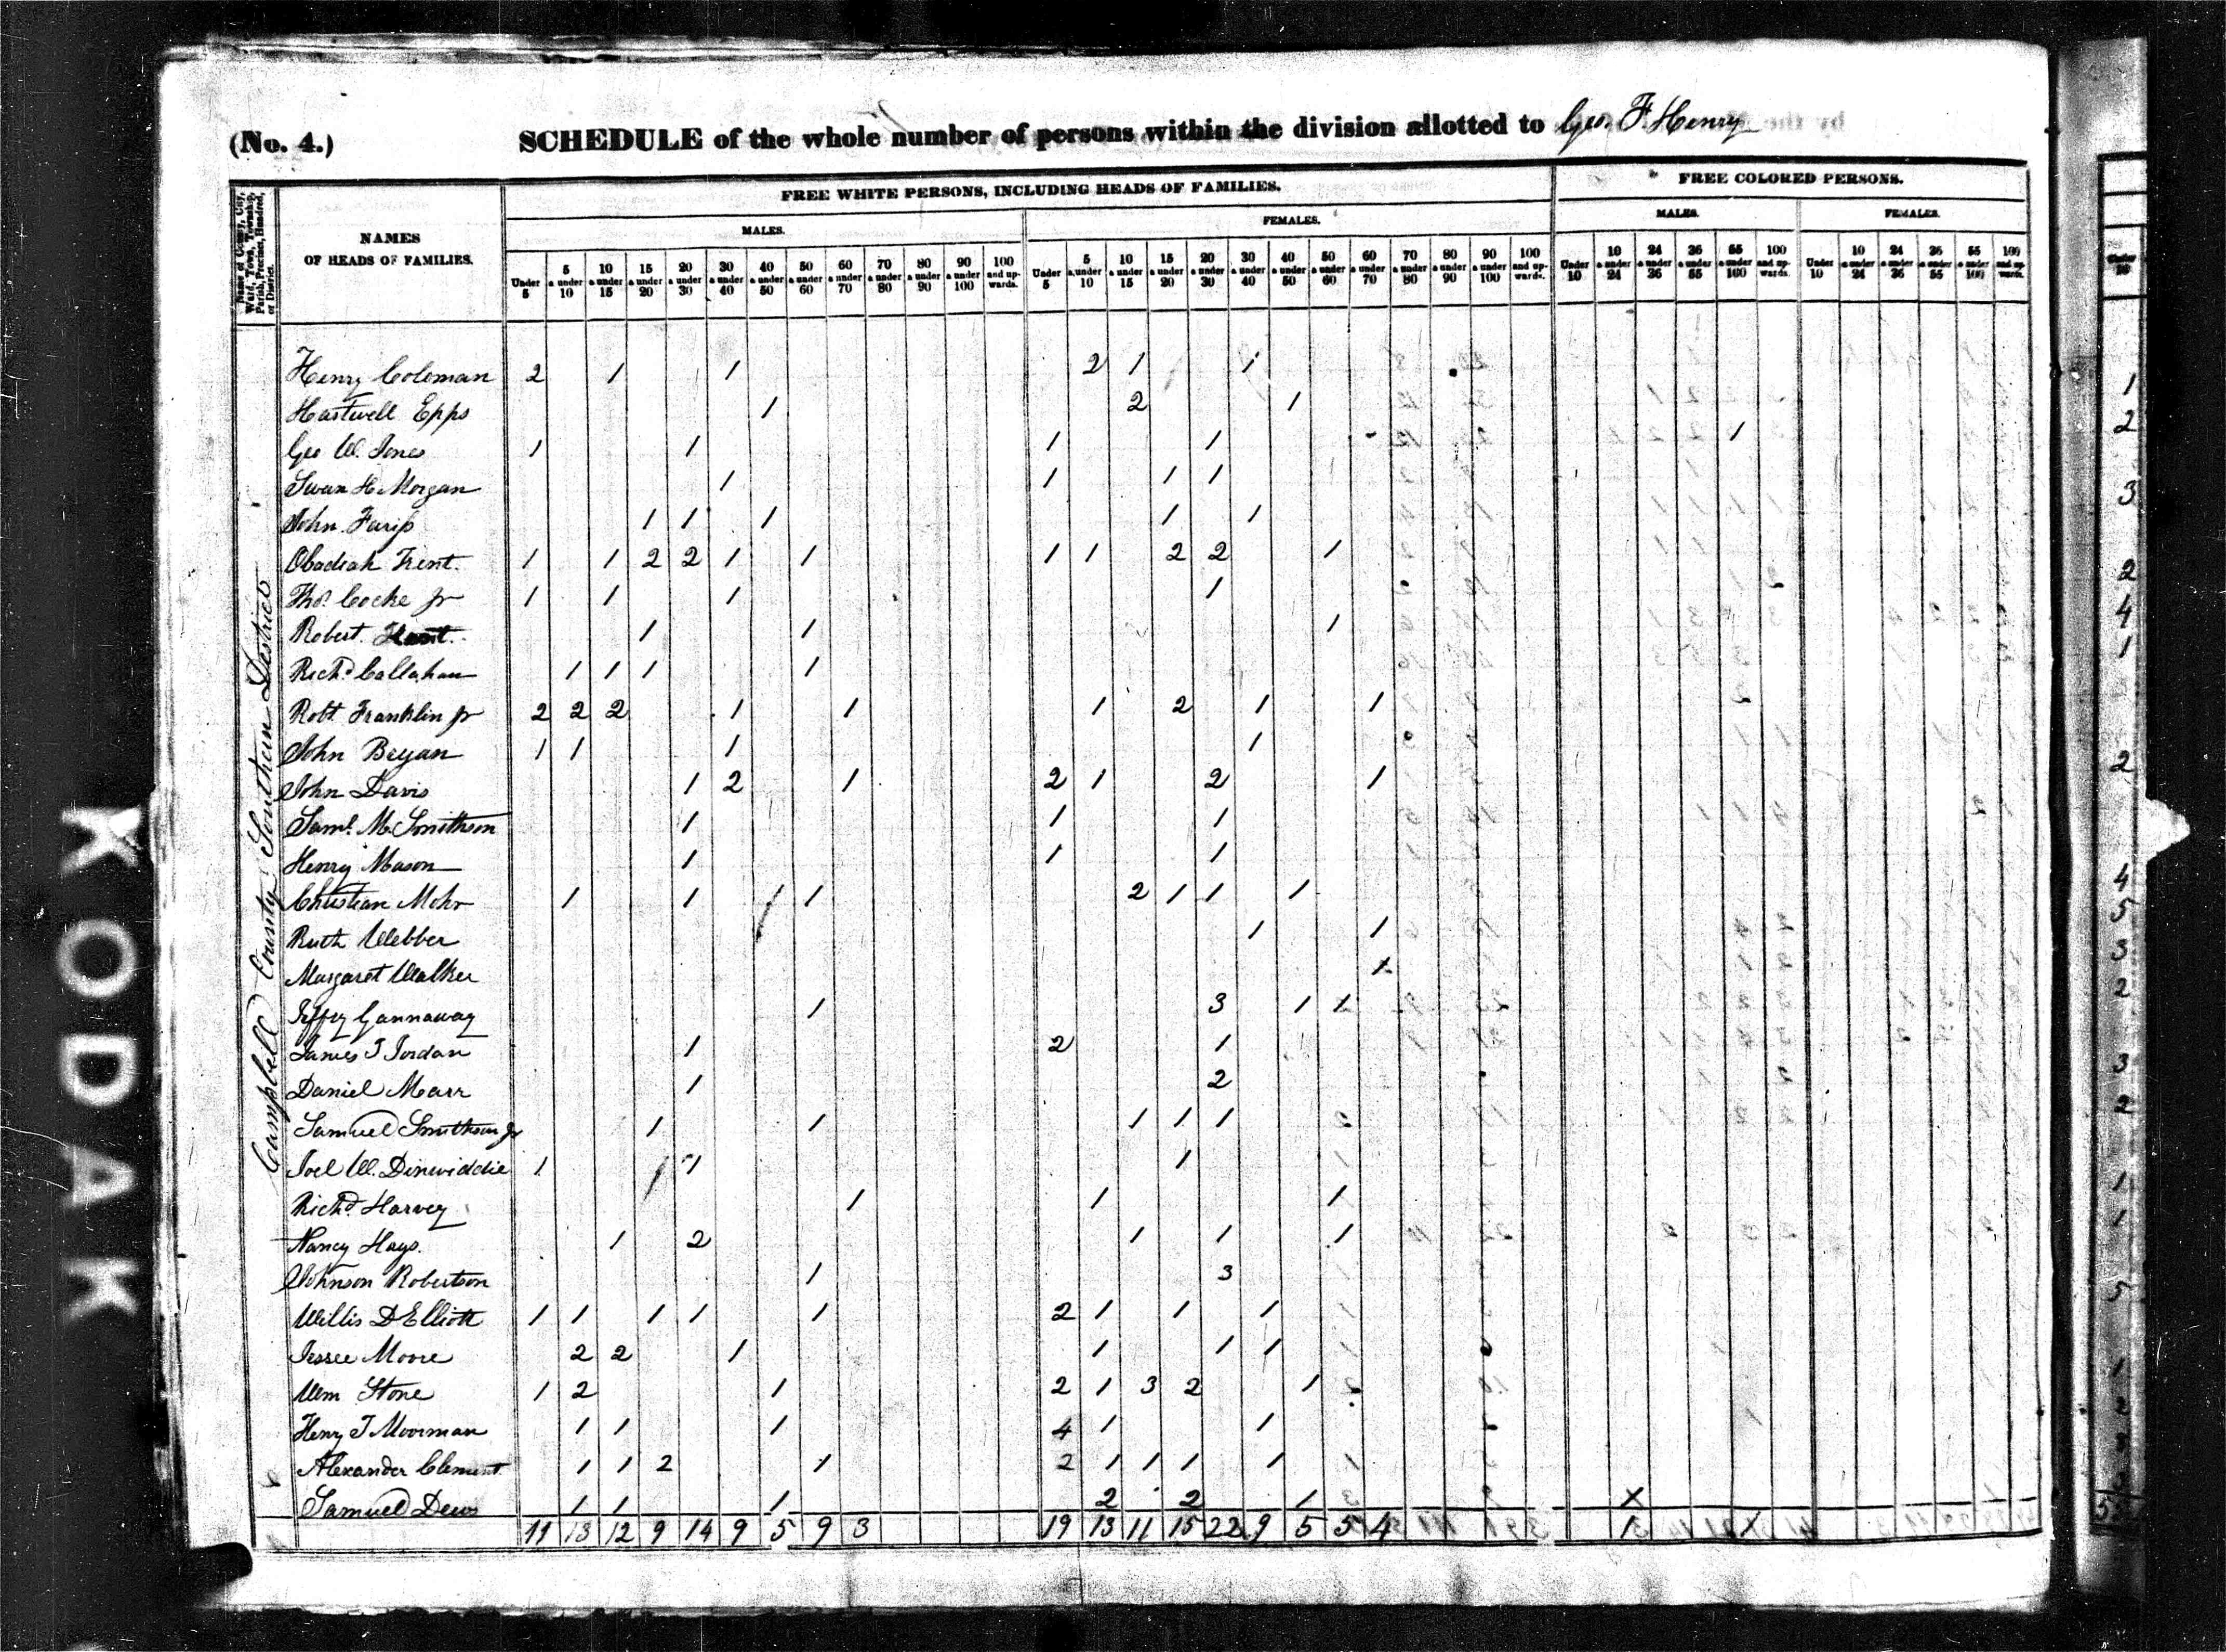 (No. 4.) SCHEDULE of the whole number of persons within the division allotted to Geo. F. Henry
FREE WHITE PERSONS, INCLUDING HEADS OF FAMILIES. FREE COLORED PERSONS.
MALES. FEMALES. MALES. FEMALES.
Name of County, City, Ward, Town, Township, Parish, Precinct, Hundred, or District.
NAMES OF HEADS OF FAMILIES.
Under 5 | 5 & under 10 | 10 & under 15 | 15 & under 20 | 20 & under 30 | 30 & under 40 | 40 & under 50 | 50 & under 60 | 60 & under 70 | 70 & under 80 | 80 & under 90 | 90 & under 100 | 100 and upwards.
Under 5 | 5 & under 10 | 10 & under 15 | 15 & under 20 | 20 & under 30 | 30 & under 40 | 40 & under 50 | 50 & under 60 | 60 & under 70 | 70 & under 80 | 80 & under 90 | 90 & under 100 | 100 and upwards.
Under 10 | 10 & under 24 | 24 & under 36 | 36 & under 55 | 55 & under 100 | 100 and upwards.
Under 10 | 10 & under 24 | 24 & under 36 | 36 & under 55 | 55 & under 100 | 100 and upwards.
Campbell County Southern District
Henry Coleman 2 1 1 2 1 1
Hartwell Epps 1 2 1
Geo W. Jones 1 1 1 1 1
Swan H. Morgan 1 1 1 1
John Farip 1 1 1 1 1
Obadiah Trent. 1 1 2 2 1 1 1 1 2 2 1
Thos. Cocke Jr 1 1 1 1
Robert 1 1 1
Richd. Callahan 1 1 1 1
Robt Franklin Jr 2 2 2 1 1 1 2 1 1
John Bryan 1 1 1 1
John Davis 1 2 1 2 1 2 1
Saml. M. Smithson 1 1 1
Henry Mason 1 1 1
Christian Mohr 1 1 1 1 2 1 1 1
Ruth Webber 1 1
Margaret Walker 1
Jeffry Gannaway 1 3 1 1
James T Jordan 1 2 1
Daniel Marr 1 2
Samuel Smithson Jr 1 1 1 1 1
Joel W. Dinwiddie 1 1 1
Richd. Harvey 1 1 1
Nancy Hays. 1 2 1 1 1
Johnson Robertson 1 3
Willis D Elliott 1 1 1 1 1 2 1 1 1
Jessee Moore 2 2 1 1 1 1
Wm Stone 1 2 1 2 1 3 2 1
Henry T Moorman 1 1 1 4 1 1
Alexander Clement. 1 1 2 1 2 1 1 1 1
Samuel Dews 1 1 1 2 2 1 X
11 13 12 9 14 9 5 9 3 19 13 11 15 22 9 5 5 4 1 1
KODAK